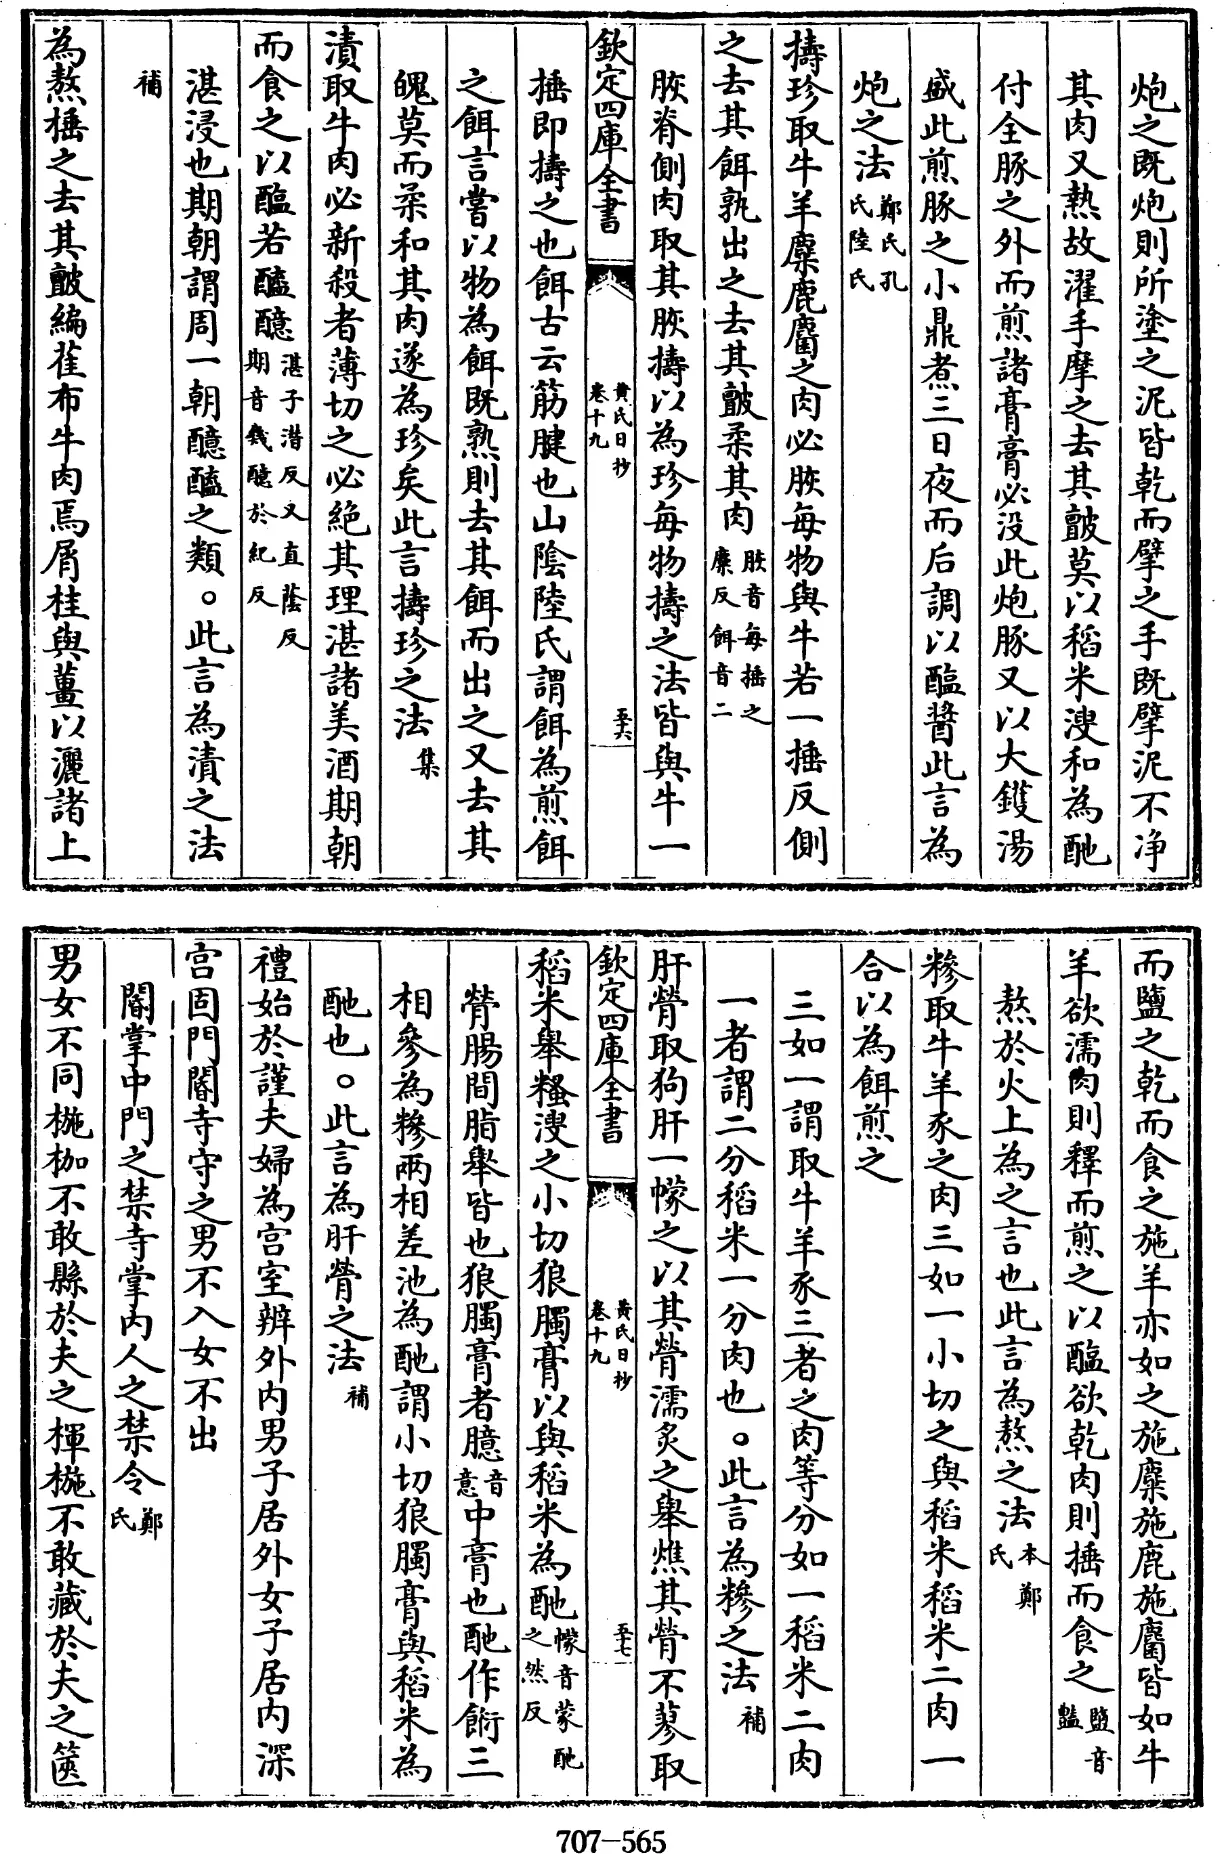 炮之既炮則所塗之泥皆乾而擘之手既擘泥不净
其肉又熱故濯手摩之去其皽莫以稻米溲和為酏
付全豚之外而煎諸膏膏必没此炮豚又以大鑊湯
盛此煎豚之小鼎煮三日夜而后調以醢醬此言為
炮之法鄭氏孔氏陸氏
擣珍取牛羊麋鹿麕之肉必脄每物與牛若一捶反側
之去其餌孰出之去其皽柔其肉脄音每捶之廉反餌音二
脄脊側肉取其脄擣以為珍每物擣之法皆與牛一
欽定四庫全書 黄氏日抄卷十九 五六
捶即擣之也餌古云筋腱也山陰陸氏謂餌為煎餌
之餌言嘗以物為餌既熟則去其餌而出之又去其
皽莫而柔和其肉遂為珍矣此言擣珍之法集
漬取牛肉必新殺者薄切之必絶其理湛諸美酒期朝
而食之以醢若醯醷湛子潜反又直蔭反期音朞醷於紀反
湛浸也期朝謂周一朝醷醯之類。此言為漬之法
補
為熬捶之去其皽編萑布牛肉焉屑桂與薑以灑諸上
而鹽之乾而食之施羊亦如之施麋施鹿施麕皆如牛
羊欲濡肉則釋而煎之以醢欲乾肉則捶而食之鹽音豔
熬於火上為之言也此言為熬之法本鄭氏
糝取牛羊豕之肉三如一小切之與稻米稻米二肉一
合以為餌煎之
三如一謂取牛羊豕三者之肉等分如一稻米二肉
一者謂二分稻米一分肉也。此言為糝之法補
肝膋取狗肝一幪之以其膋濡炙之舉燋其膋不蓼取
欽定四庫全書 黄氏日抄卷十九 五七
稻米舉糔溲之小切狼臅膏以與稻米為酏幪音蒙酏之然反
膋腸間脂舉皆也狼臅膏者臆音意中膏也酏作餰三
相參為糝兩相差池為酏謂小切狼臅膏與稻米為
酏也。此言為肝膋之法補
禮始於謹夫婦為宫室辨外内男子居外女子居内深
宫固門閽寺守之男不入女不出
閽掌中門之禁寺掌内人之禁令鄭氏
男女不同椸枷不敢縣於夫之楎椸不敢藏於夫之篋
707–565